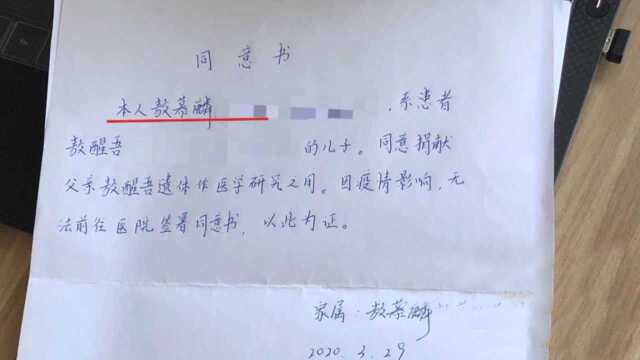 同意书
本人敖慕麟 ，系患者
敖醒吾 的儿子。同意捐献
父亲敖醒吾遗体作医学研究之用。因疫情影响，无
法前往医院签署同意书，以此为证。
家属：敖慕麟
2020.3.29